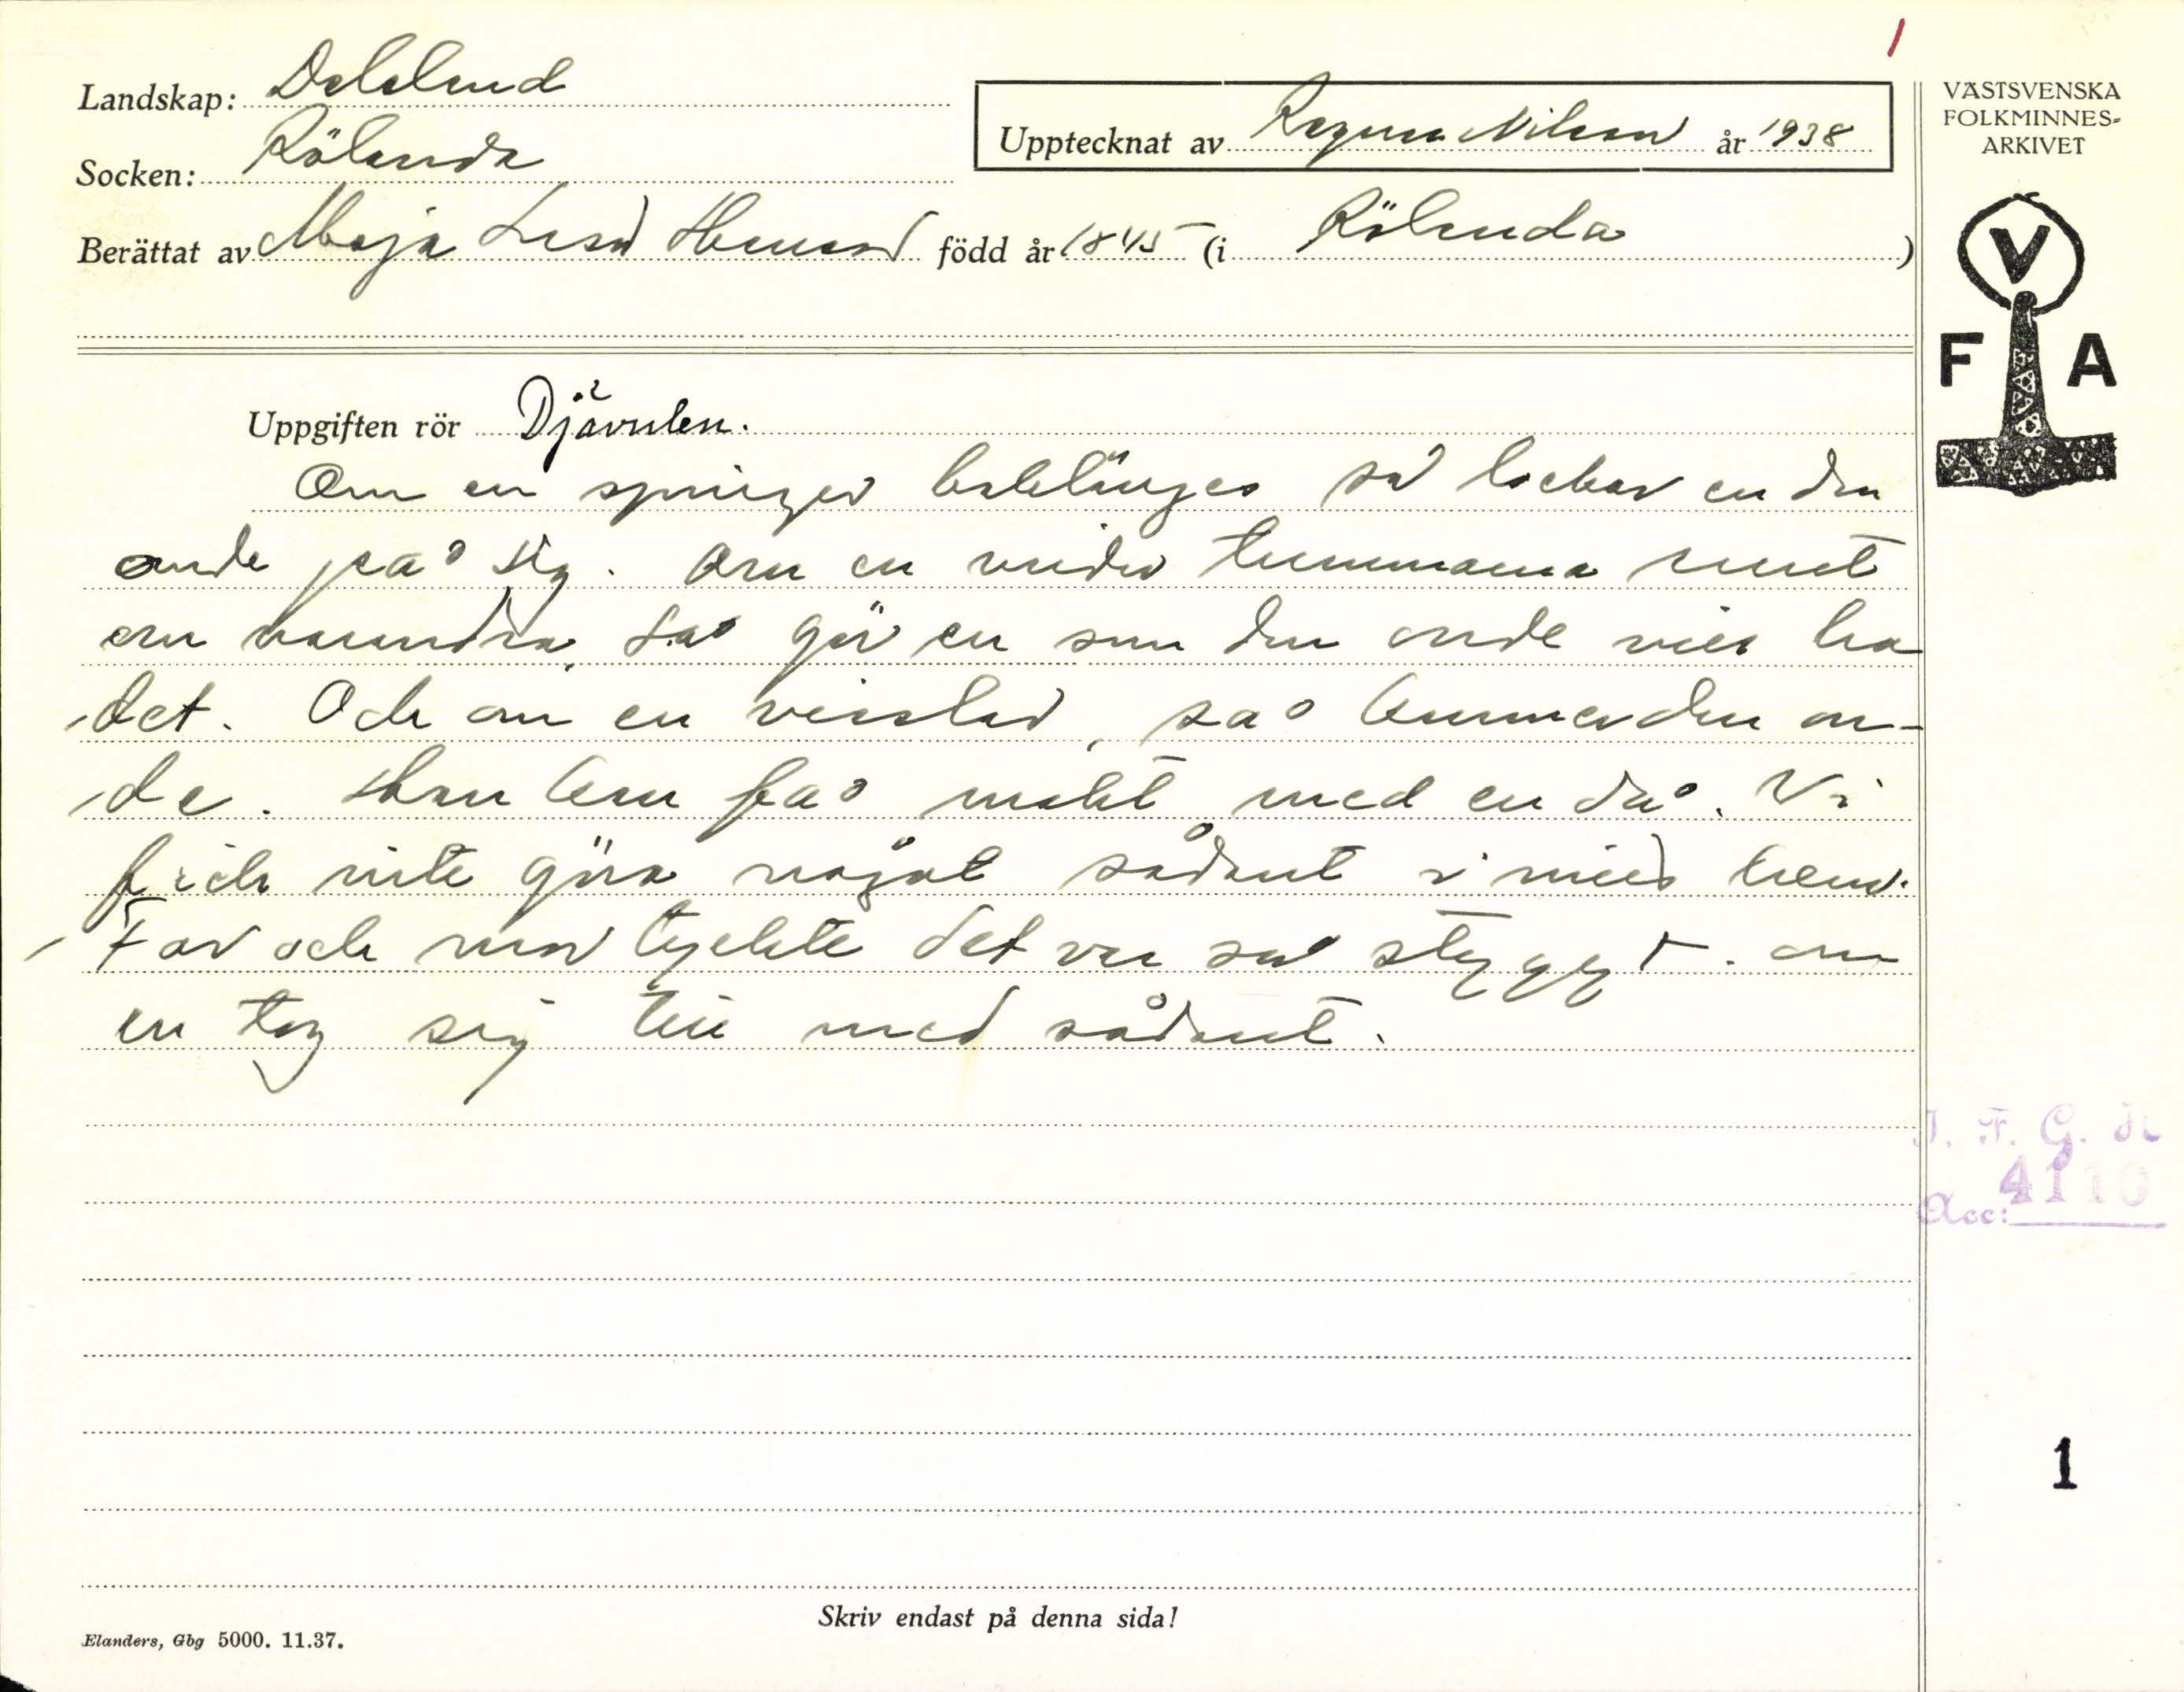 Landskap: Dalsland
Socken: Rölanda
Upptecknat av Ragnar Nilsson år 1938
Berättat av Maja Lisa född år 1845 (i Rölanda)
VÄSTSVENSKA
FOLKMINNES-
ARKIVET
V
F A
Uppgiften rör Djävulen.
Om en springer baklänges så lockar en den
onde på sig. Om en vrider tummarna runt
om varandra, så gör en som den onde vill ha
det. Och om en visslar, så kommer den on-
de. Han kan få makt med en då. Vi
fick inte göra något sådant i mitt hem.
Far och mor tyckte det var så styggt om
en tog sig till med sådant.
I. F. G. H
Acc: 4110
1
Skriv endast på denna sida!
Elanders, Gbg 5000. 11.37.